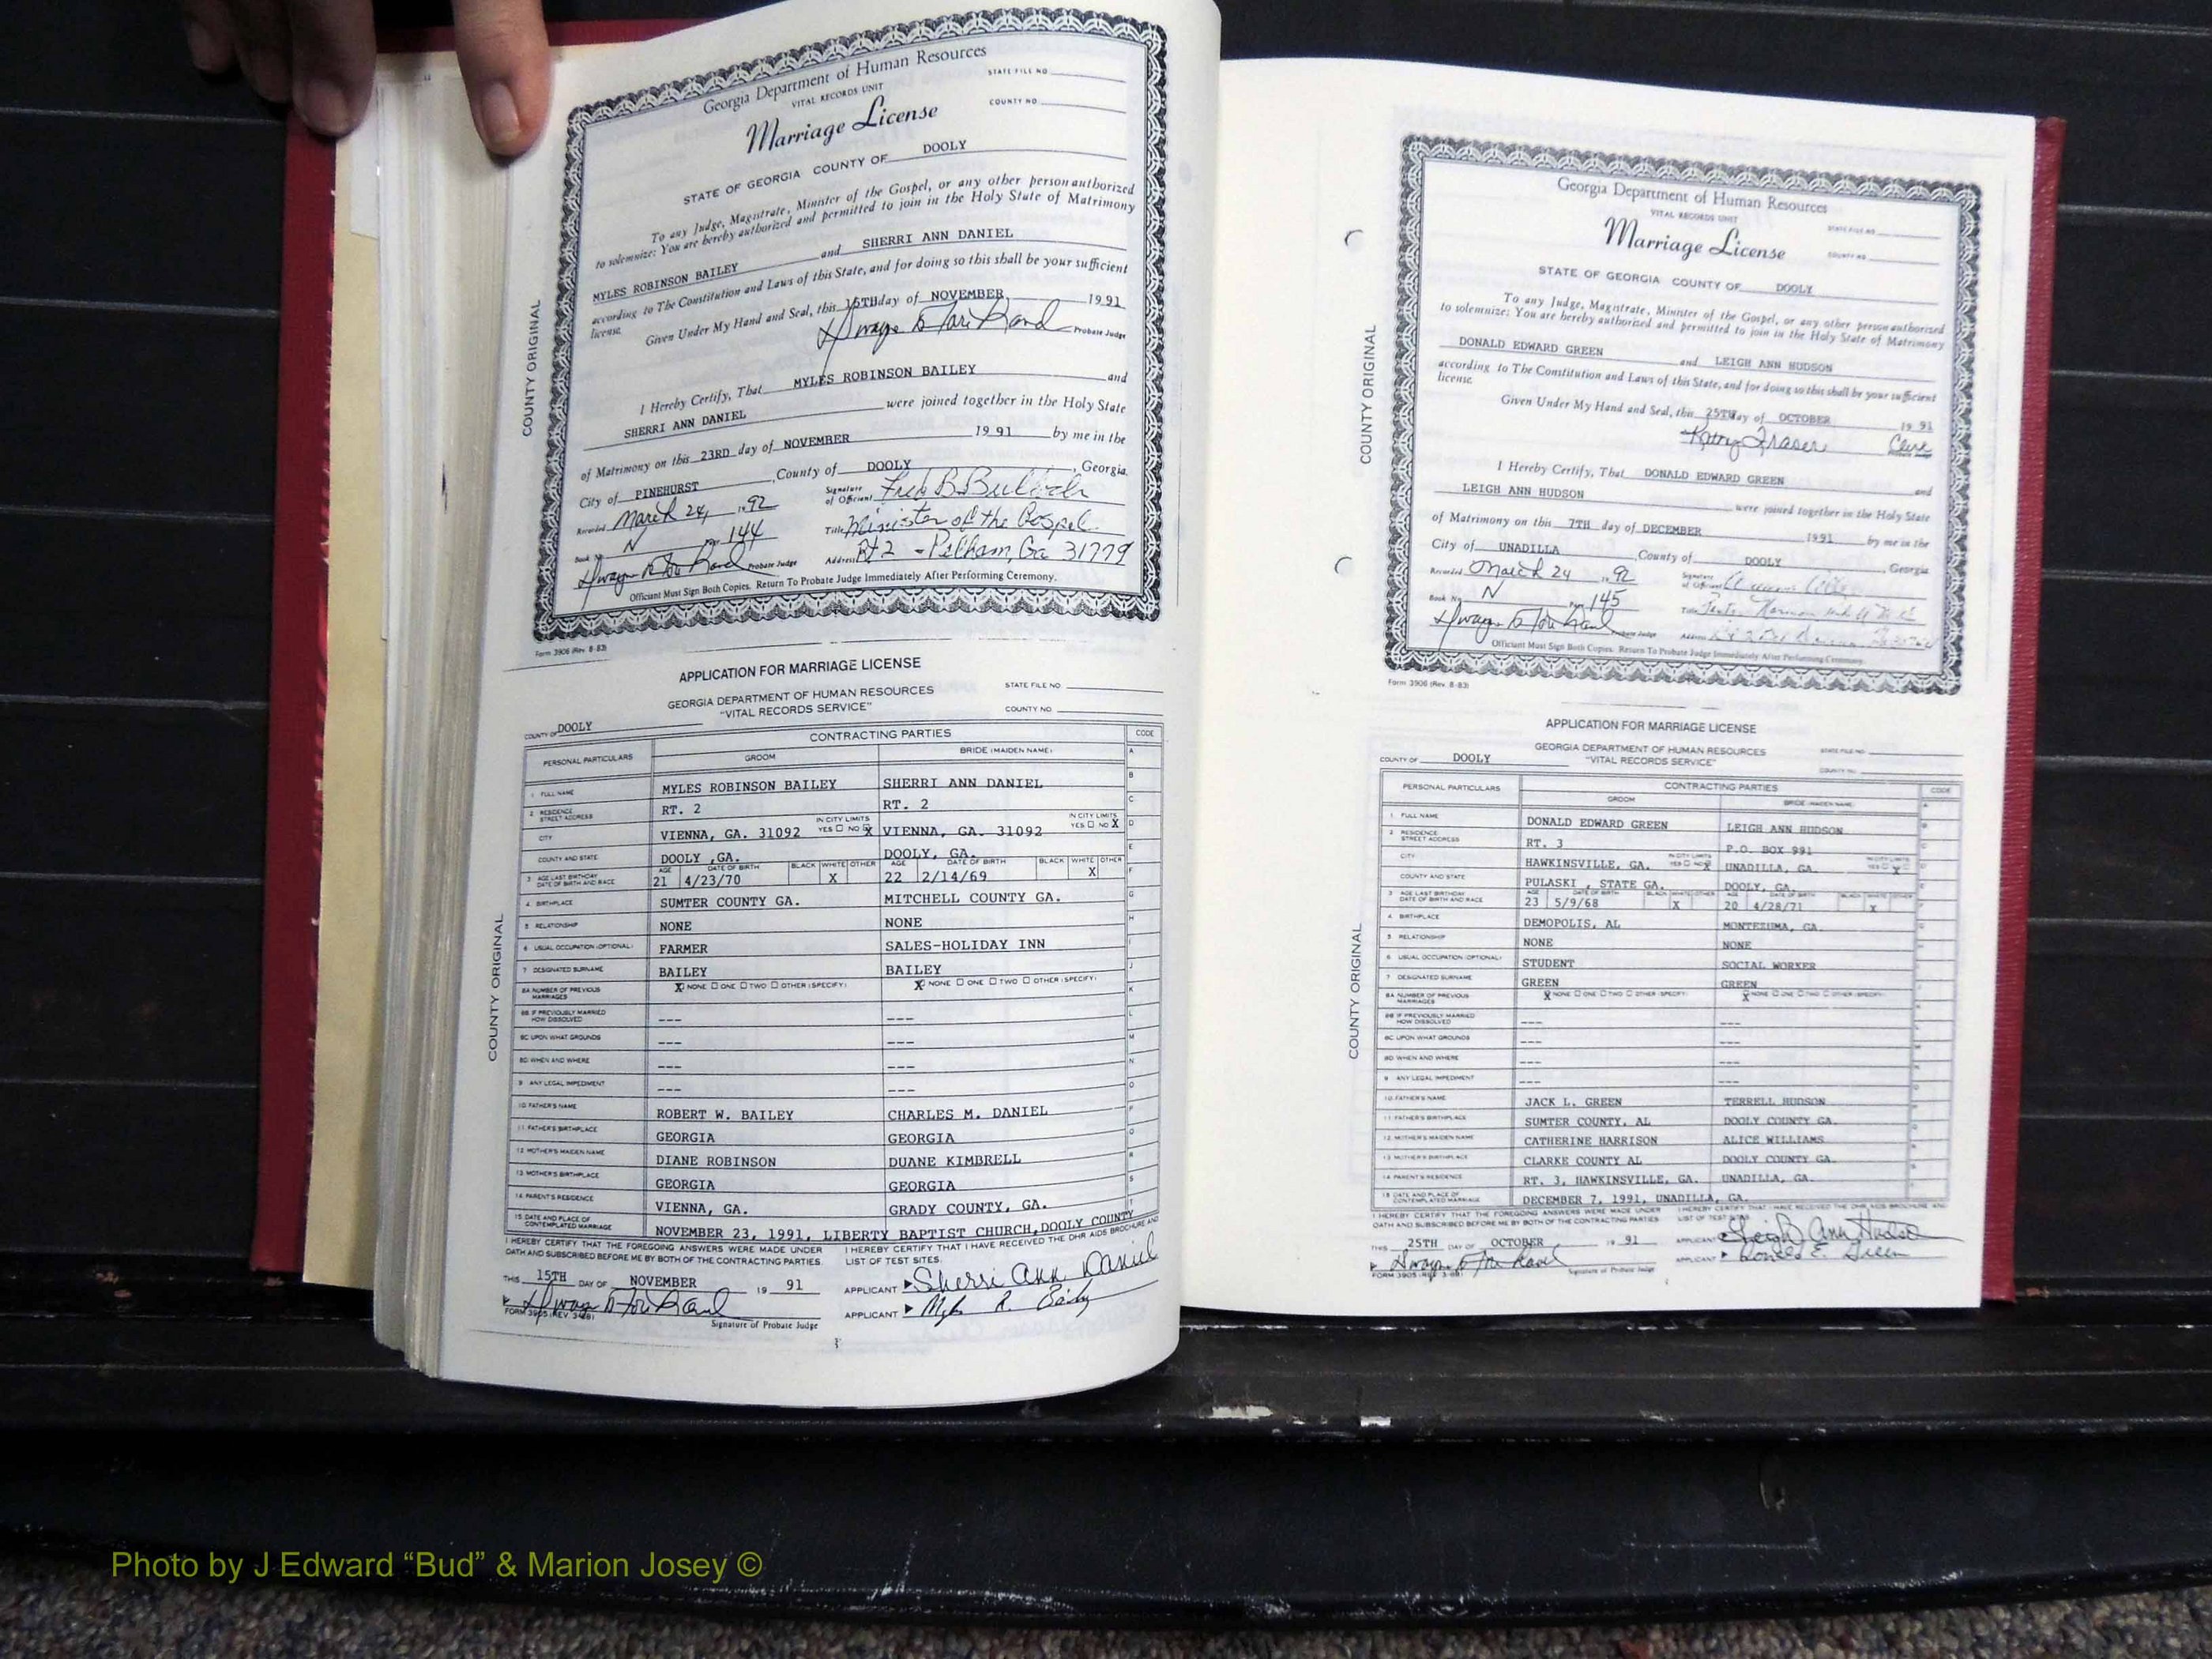 Georgia Department of Human Resources
VITAL RECORDS UNIT
STATE FILE NO.
Marriage License
COUNTY NO.
STATE OF GEORGIA COUNTY OF DOOLY
To any Judge, Magistrate, Minister of the Gospel, or any other person authorized
to solemnize: You are hereby authorized and permitted to join in the Holy State of Matrimony
MYLES ROBINSON BAILEY and SHERRI ANN DANIEL
according to The Constitution and Laws of this State, and for doing so this shall be your sufficient
license.
Given Under My Hand and Seal, this 15TH day of NOVEMBER 1991
Probate Judge
I Hereby Certify, That MYLES ROBINSON BAILEY and
SHERRI ANN DANIEL were joined together in the Holy State
of Matrimony on this 23RD day of NOVEMBER 1991 by me in the
City of PINEHURST, County of DOOLY, Georgia.
Recorded March 24, 1992 Signature of Officiant Fred B. Bulloch
Book No. N Page 144 Title Minister of the Gospel
Probate Judge Address Rt 2 - Pelham, Ga 31779
Officiant Must Sign Both Copies. Return To Probate Judge Immediately After Performing Ceremony.
Form 3906 (Rev. 8-83)
COUNTY ORIGINAL
APPLICATION FOR MARRIAGE LICENSE
GEORGIA DEPARTMENT OF HUMAN RESOURCES STATE FILE NO.
"VITAL RECORDS SERVICE" COUNTY NO.
COUNTY OF DOOLY
PERSONAL PARTICULARS CONTRACTING PARTIES CODE
GROOM BRIDE (MAIDEN NAME) A
1 FULL NAME MYLES ROBINSON BAILEY SHERRI ANN DANIEL B
2 RESIDENCE STREET ADDRESS RT. 2 RT. 2 C
CITY VIENNA, GA. 31092 IN CITY LIMITS YES NO X VIENNA, GA. 31092 IN CITY LIMITS YES NO X D
COUNTY AND STATE DOOLY ,GA. DOOLY, GA. E
3 AGE LAST BIRTHDAY DATE OF BIRTH AND RACE AGE 21 DATE OF BIRTH 4/23/70 BLACK WHITE X OTHER AGE 22 DATE OF BIRTH 2/14/69 BLACK WHITE X OTHER F
4 BIRTHPLACE SUMTER COUNTY GA. MITCHELL COUNTY GA. G
5 RELATIONSHIP NONE NONE H
6 USUAL OCCUPATION (OPTIONAL) FARMER SALES-HOLIDAY INN I
7 DESIGNATED SURNAME BAILEY BAILEY J
8A NUMBER OF PREVIOUS MARRIAGES X NONE ONE TWO OTHER (SPECIFY) X NONE ONE TWO OTHER (SPECIFY) K
8B IF PREVIOUSLY MARRIED HOW DISSOLVED --- --- L
8C UPON WHAT GROUNDS --- --- M
8D WHEN AND WHERE --- --- N
9 ANY LEGAL IMPEDIMENT --- --- O
10 FATHER'S NAME ROBERT W. BAILEY CHARLES M. DANIEL P
11 FATHER'S BIRTHPLACE GEORGIA GEORGIA Q
12 MOTHER'S MAIDEN NAME DIANE ROBINSON DUANE KIMBRELL R
13 MOTHER'S BIRTHPLACE GEORGIA GEORGIA S
14 PARENT'S RESIDENCE VIENNA, GA. GRADY COUNTY, GA. T
15 DATE AND PLACE OF CONTEMPLATED MARRIAGE NOVEMBER 23, 1991, LIBERTY BAPTIST CHURCH, DOOLY COUNTY
I HEREBY CERTIFY THAT THE FOREGOING ANSWERS WERE MADE UNDER I HEREBY CERTIFY THAT I HAVE RECEIVED THE DHR AIDS BROCHURE AND
OATH AND SUBSCRIBED BEFORE ME BY BOTH OF THE CONTRACTING PARTIES. LIST OF TEST SITES.
THIS 15TH DAY OF NOVEMBER 19 91 APPLICANT Sherri Ann Daniel
FORM 3905 (REV. 3-88) Signature of Probate Judge APPLICANT Myles R. Bailey
COUNTY ORIGINAL
Georgia Department of Human Resources
VITAL RECORDS UNIT
STATE FILE NO.
Marriage License
COUNTY NO.
STATE OF GEORGIA COUNTY OF DOOLY
To any Judge, Magistrate, Minister of the Gospel, or any other person authorized
to solemnize: You are hereby authorized and permitted to join in the Holy State of Matrimony
DONALD EDWARD GREEN and LEIGH ANN HUDSON
according to The Constitution and Laws of this State, and for doing so this shall be your sufficient
license.
Given Under My Hand and Seal, this 25TH day of OCTOBER 1991
Kathy Fraser Clerk
Probate Judge
I Hereby Certify, That DONALD EDWARD GREEN and
LEIGH ANN HUDSON were joined together in the Holy State
of Matrimony on this 7TH day of DECEMBER 1991 by me in the
City of UNADILLA, County of DOOLY, Georgia
Recorded March 24 1992 Signature of Officiant
Book No. N Page 145 Title
Probate Judge Address
Officiant Must Sign Both Copies. Return To Probate Judge Immediately After Performing Ceremony.
Form 3906 (Rev. 8-83)
COUNTY ORIGINAL
APPLICATION FOR MARRIAGE LICENSE
GEORGIA DEPARTMENT OF HUMAN RESOURCES STATE FILE NO.
COUNTY OF DOOLY "VITAL RECORDS SERVICE" COUNTY NO.
PERSONAL PARTICULARS CONTRACTING PARTIES CODE
GROOM BRIDE (MAIDEN NAME)
1 FULL NAME DONALD EDWARD GREEN LEIGH ANN HUDSON
2 RESIDENCE STREET ADDRESS RT. 3 P.O. BOX 991
CITY HAWKINSVILLE, GA. IN CITY LIMITS YES NO X UNADILLA, GA. X
COUNTY AND STATE PULASKI , STATE GA. DOOLY, GA.
3 AGE LAST BIRTHDAY DATE OF BIRTH AND RACE 23 5/9/68 X 20 4/28/71 X
4 BIRTHPLACE DEMOPOLIS, AL MONTEZUMA, GA.
5 RELATIONSHIP NONE NONE
6 USUAL OCCUPATION (OPTIONAL) STUDENT SOCIAL WORKER
7 DESIGNATED SURNAME GREEN GREEN
8A NUMBER OF PREVIOUS MARRIAGES X NONE ONE TWO OTHER (SPECIFY) X NONE ONE TWO OTHER (SPECIFY)
8B IF PREVIOUSLY MARRIED HOW DISSOLVED --- ---
8C UPON WHAT GROUNDS --- ---
8D WHEN AND WHERE --- ---
9 ANY LEGAL IMPEDIMENT --- ---
10 FATHER'S NAME JACK L. GREEN TERRELL HUDSON
11 FATHER'S BIRTHPLACE SUMTER COUNTY, AL DOOLY COUNTY GA.
12 MOTHER'S MAIDEN NAME CATHERINE HARRISON ALICE WILLIAMS
13 MOTHER'S BIRTHPLACE CLARKE COUNTY AL DOOLY COUNTY GA.
14 PARENT'S RESIDENCE RT. 3, HAWKINSVILLE, GA. UNADILLA, GA.
15 DATE AND PLACE OF CONTEMPLATED MARRIAGE DECEMBER 7, 1991, UNADILLA, GA.
I HEREBY CERTIFY THAT THE FOREGOING ANSWERS WERE MADE UNDER I HEREBY CERTIFY THAT I HAVE RECEIVED THE DHR AIDS BROCHURE AND
OATH AND SUBSCRIBED BEFORE ME BY BOTH OF THE CONTRACTING PARTIES LIST OF TEST SITES.
THIS 25TH DAY OF OCTOBER 19 91 APPLICANT Leigh Ann Hudson
Signature of Probate Judge APPLICANT Donald E. Green
COUNTY ORIGINAL
Photo by J Edward “Bud” & Marion Josey ©